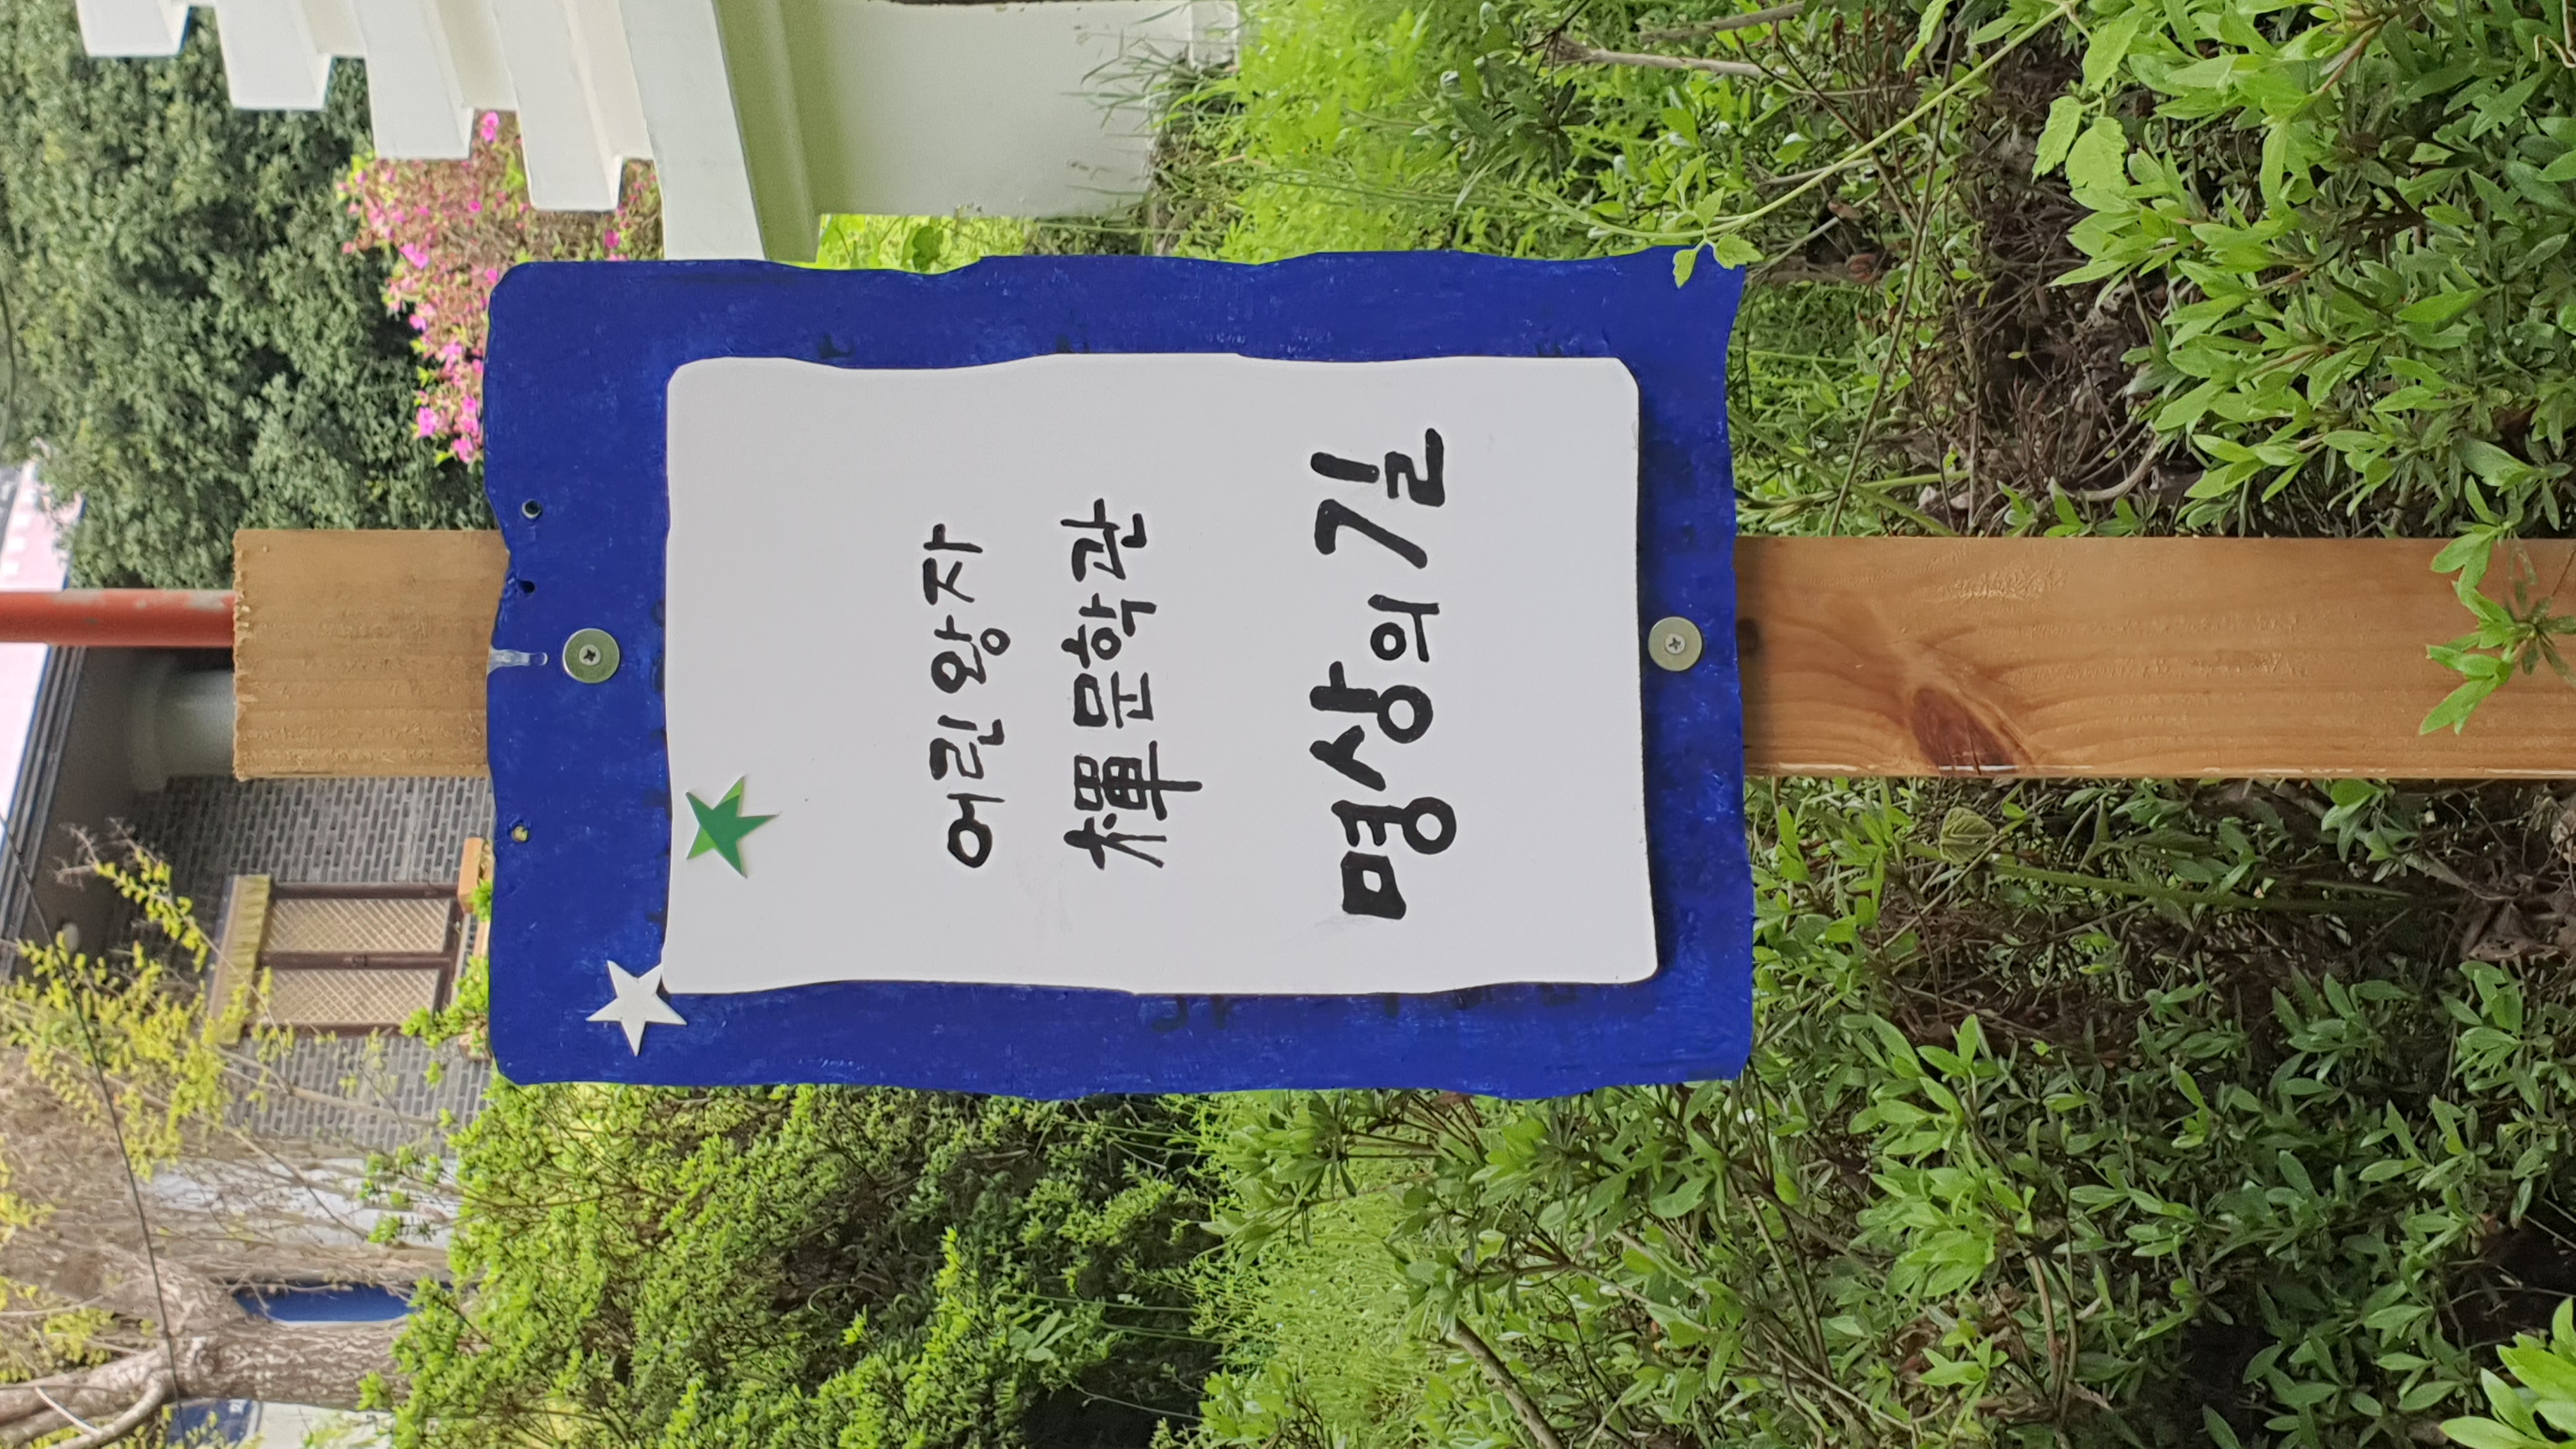 어린왕자
禪문학관
명상의 길